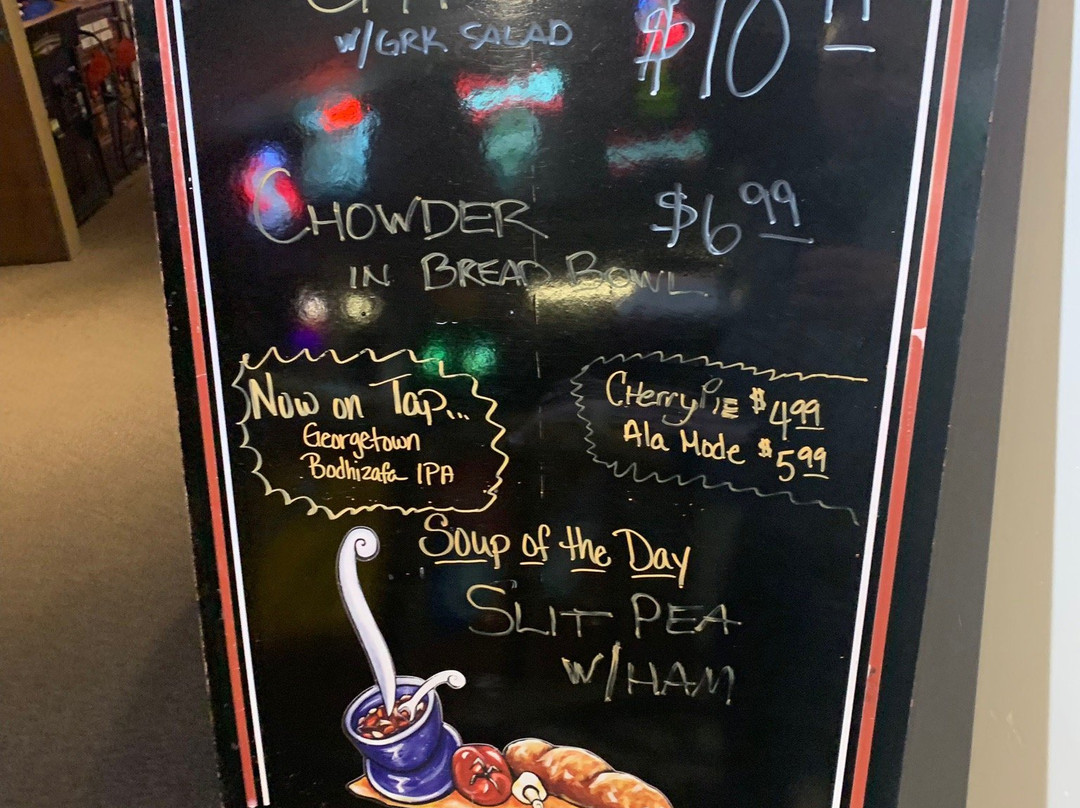 W/GRK SALAD
CHOWDER $6.99
IN BREAD BOWL
Now on Tap...
Georgetown
Bodhizafa IPA
CHerry PIE $4.99
Ala Mode $5.99
Soup of the Day
SLIT PEA
W/HAM